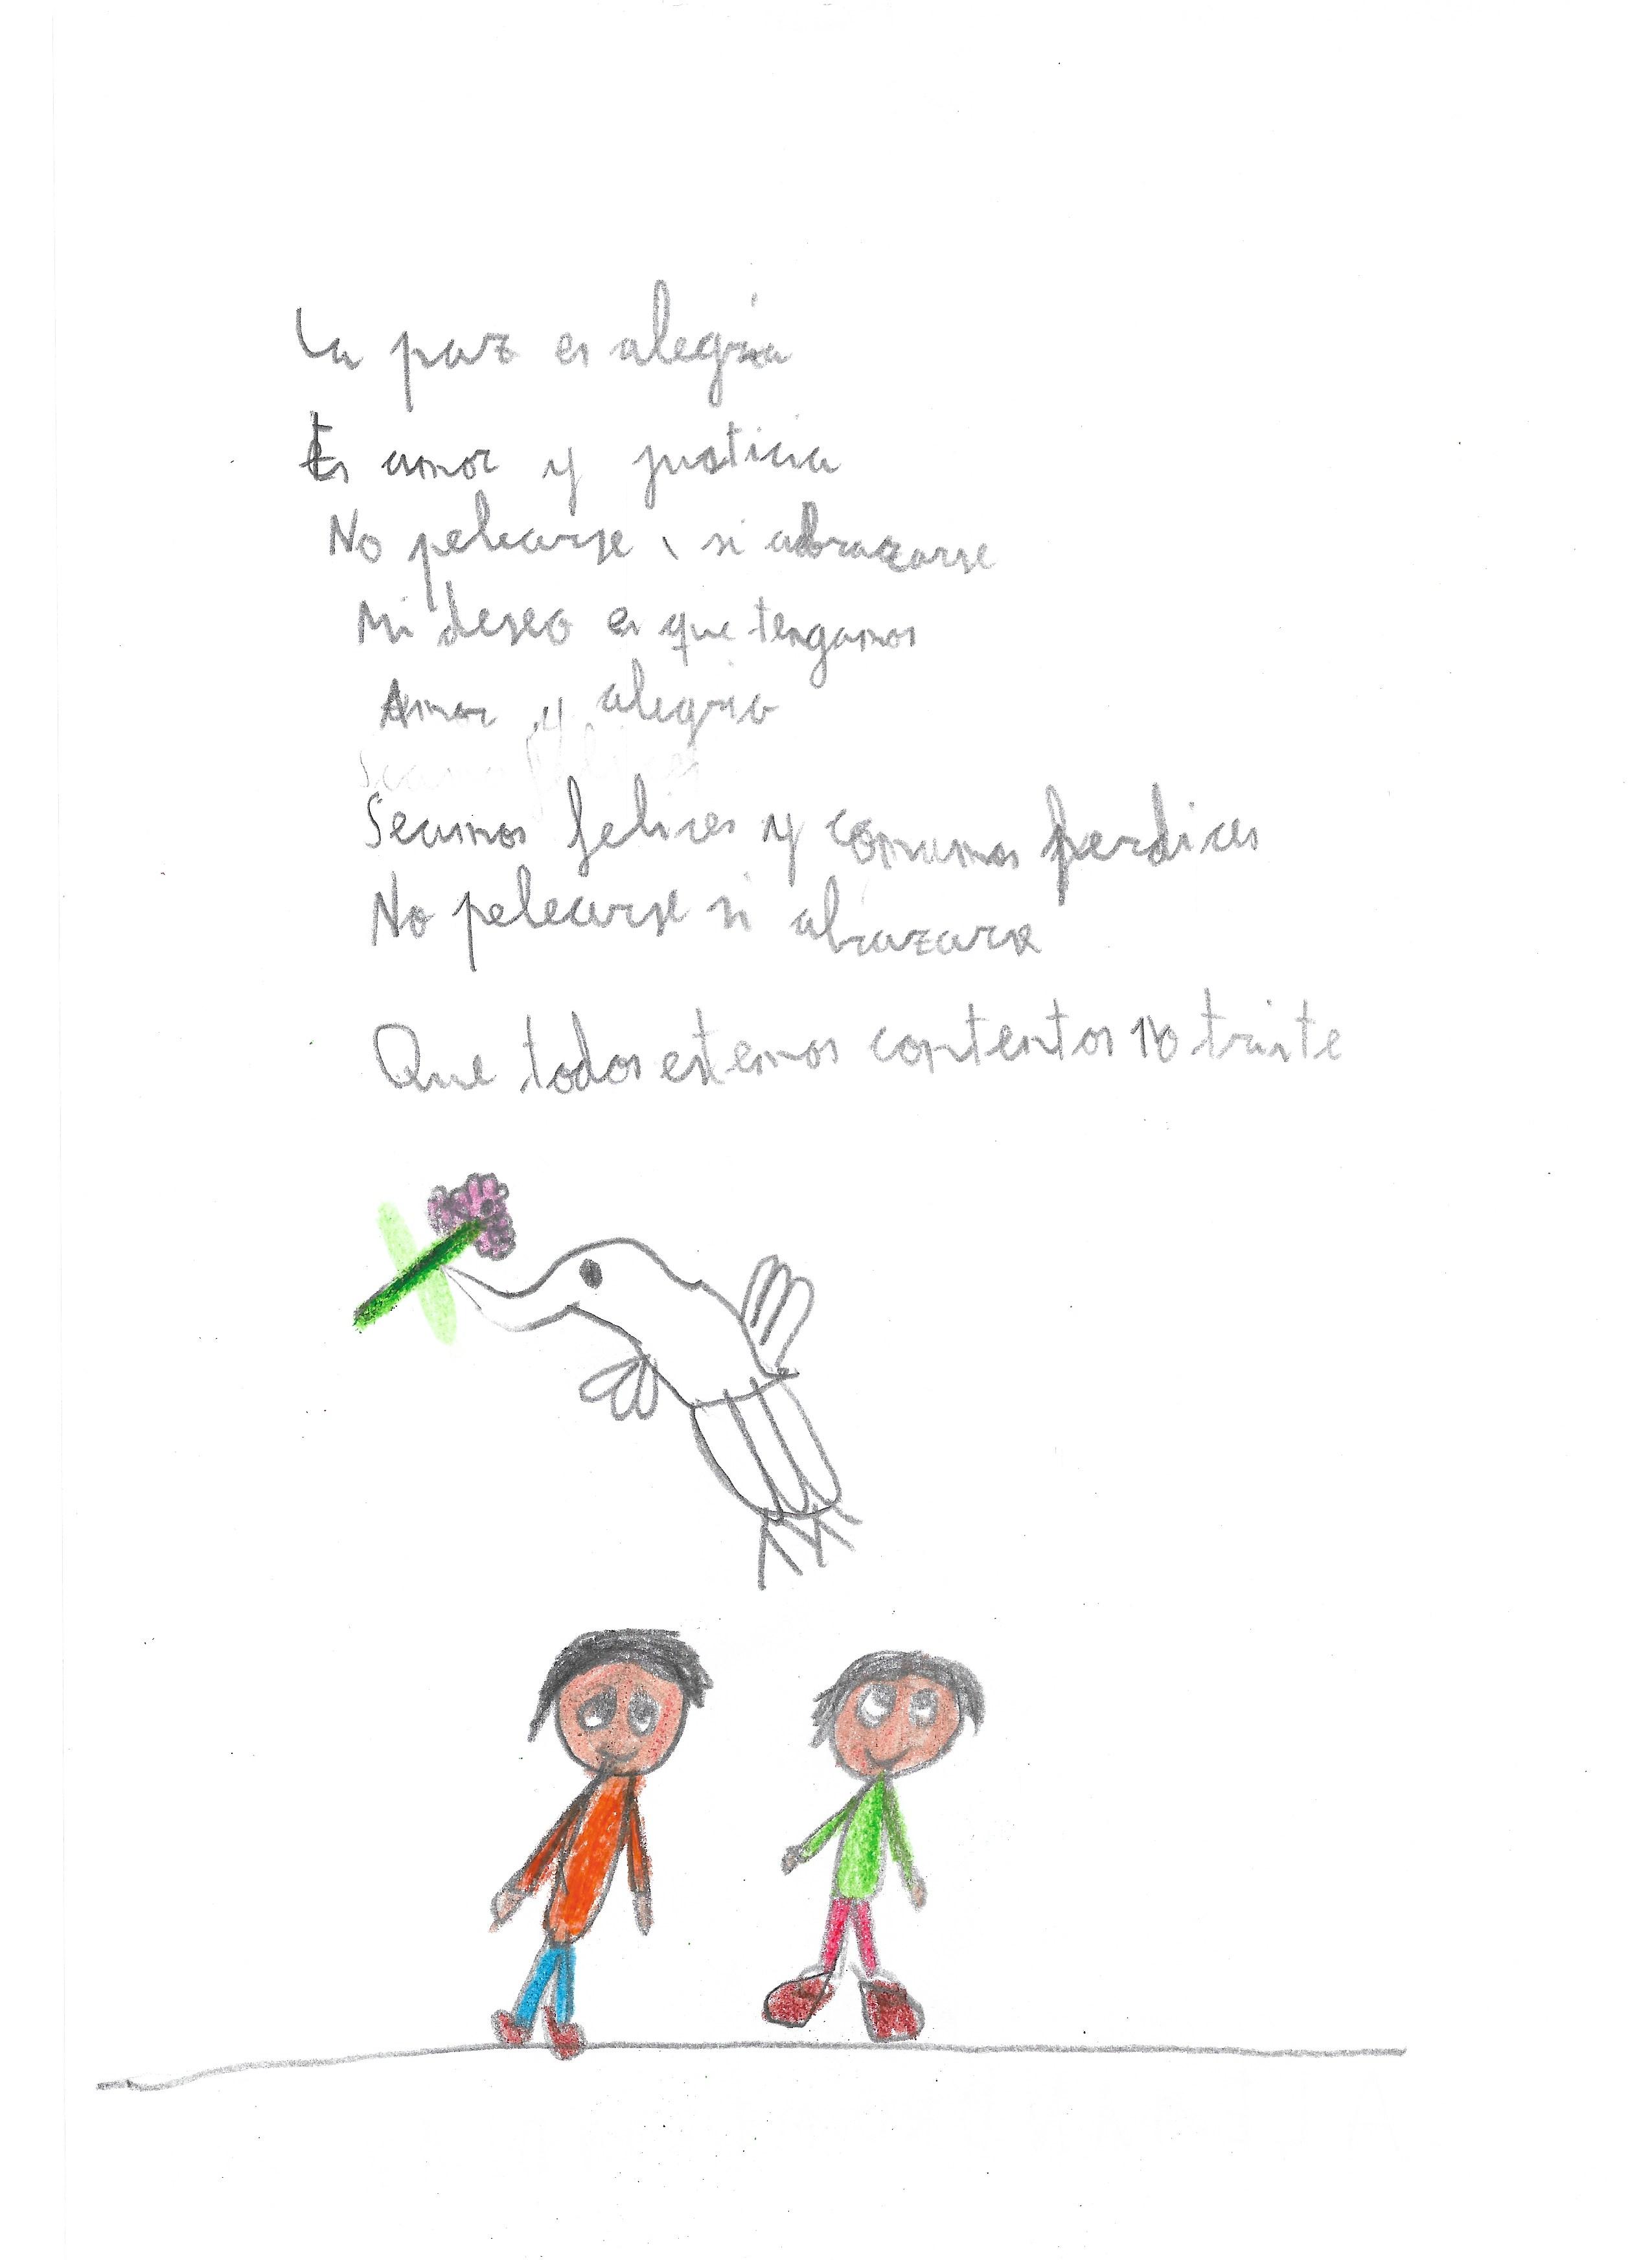 La paz es alegría
Es amor y justicia
No pelearse, si abrazarse
Mi deseo es que tengamos
Amor y alegria
Seamos felices y comamos perdices
No pelearse si abrazarse
Que todos estemos contentos no triste